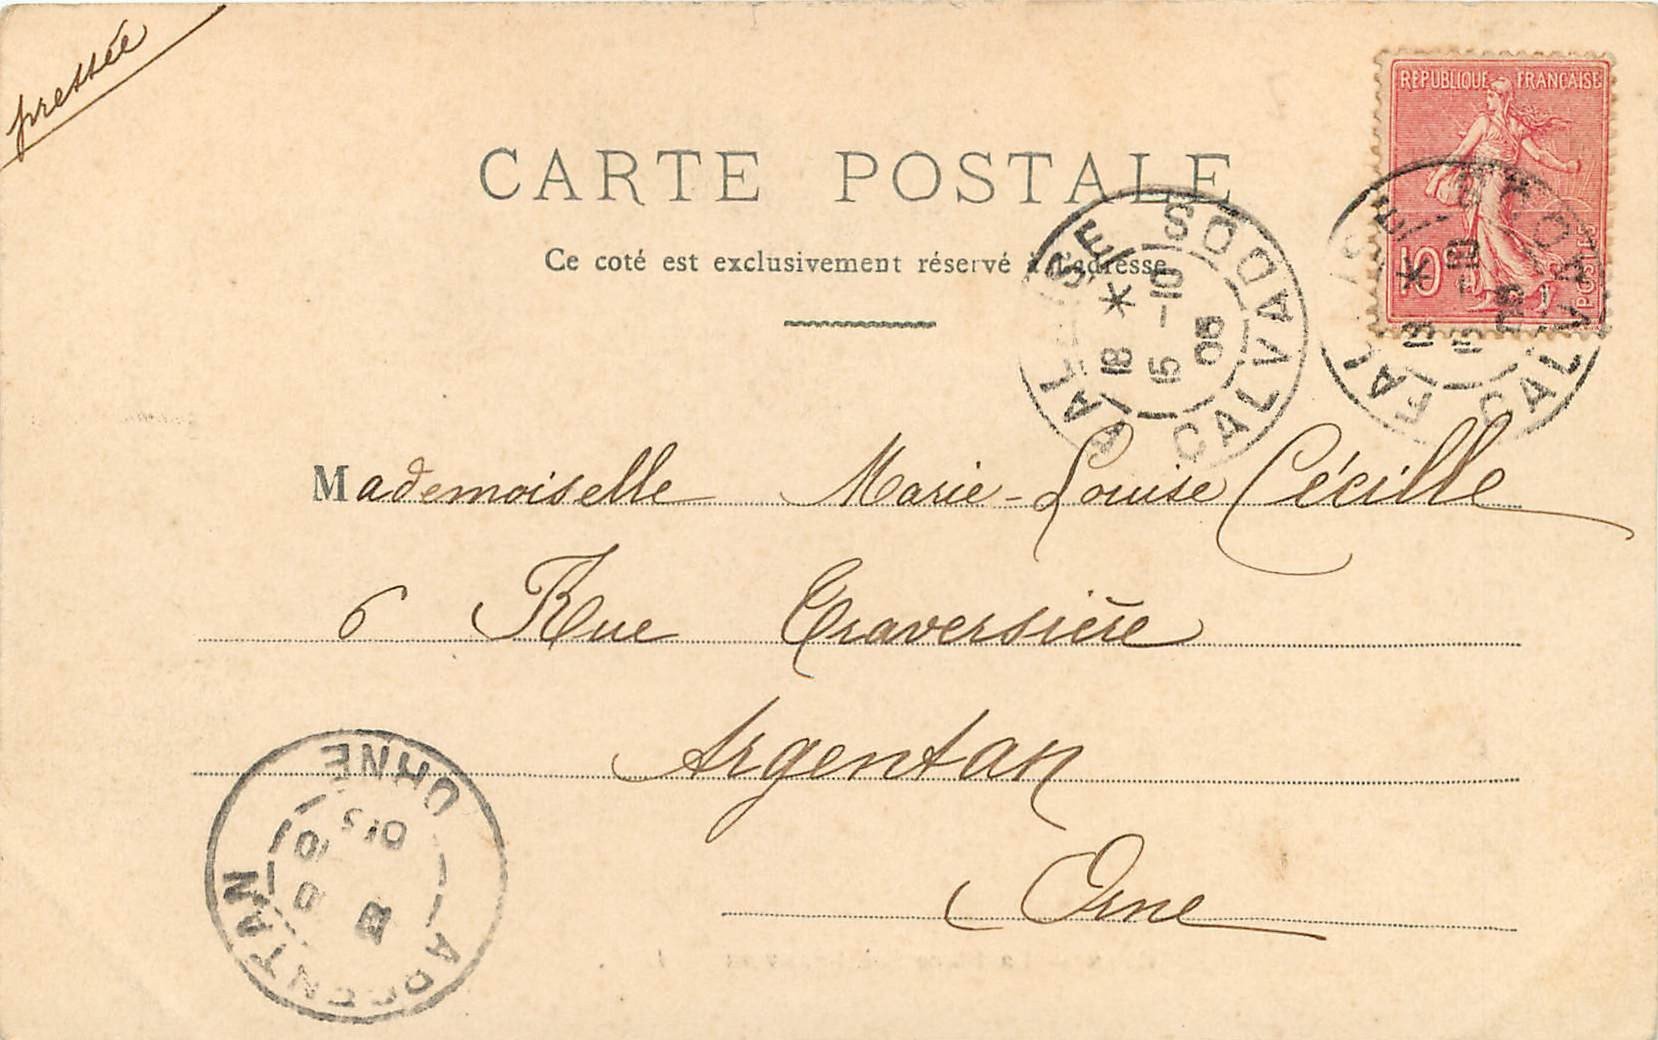 pressée
REPUBLIQUE FRANÇAISE
10
POSTES
CARTE POSTALE
Ce coté est exclusivement réservé à l'adresse
FALAISE CALVADOS
18 *
15 -10
05
FALAISE CALVADOS
Mademoiselle Marie-Louise Cécille
6 Rue Traversière
Argentan
Orne
ARGENTAN ORNE